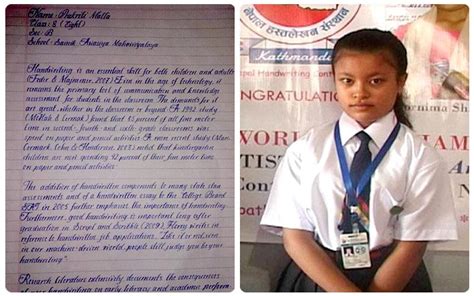 Name:-Prakriti Malla
Class:-8 (Eight)
Sec:-B
School:-Sainik Awasiya Mahavidyalaya
Handwriting is an essential skill for both children and adults
(Feder & Majnemer, 2007). Even in the age of technology, it
remains the primary tool of communication and knowledge
assessment for students in the classroom. The demands for it
are great, whether in the classroom or beyond. A 1992 study
(McHale & Cermak) found that 85 percent of all fine motor
time in second-, fourth- and sixth-grade classrooms was
spent on paper and pencil activities. A more recent study (Marr,
Cermak, Cohn & Henderson, 2003) noted that kindergarten
children are now spending 42 percent of their fine motor time
on paper and pencil activities.
The addition of handwritten components to many state
assessments and of a handwritten essay to the College Board
SAT in 2005 further emphasize the importance of handwriting.
Furthermore, good handwriting is important long after
graduation.
reference to handwritten job applications. "Like it or not, even
in our machine-driven world, people still judge you by your
handwriting."
Research literature extensively documents the consequences
of poor handwriting on early literacy and academic perform
नेपाल हस्तलेखन संस्थान
Kathmandu
Nepal Handwriting
CONGRATULATION
Purnima Sh
WORL
HAM
TIST